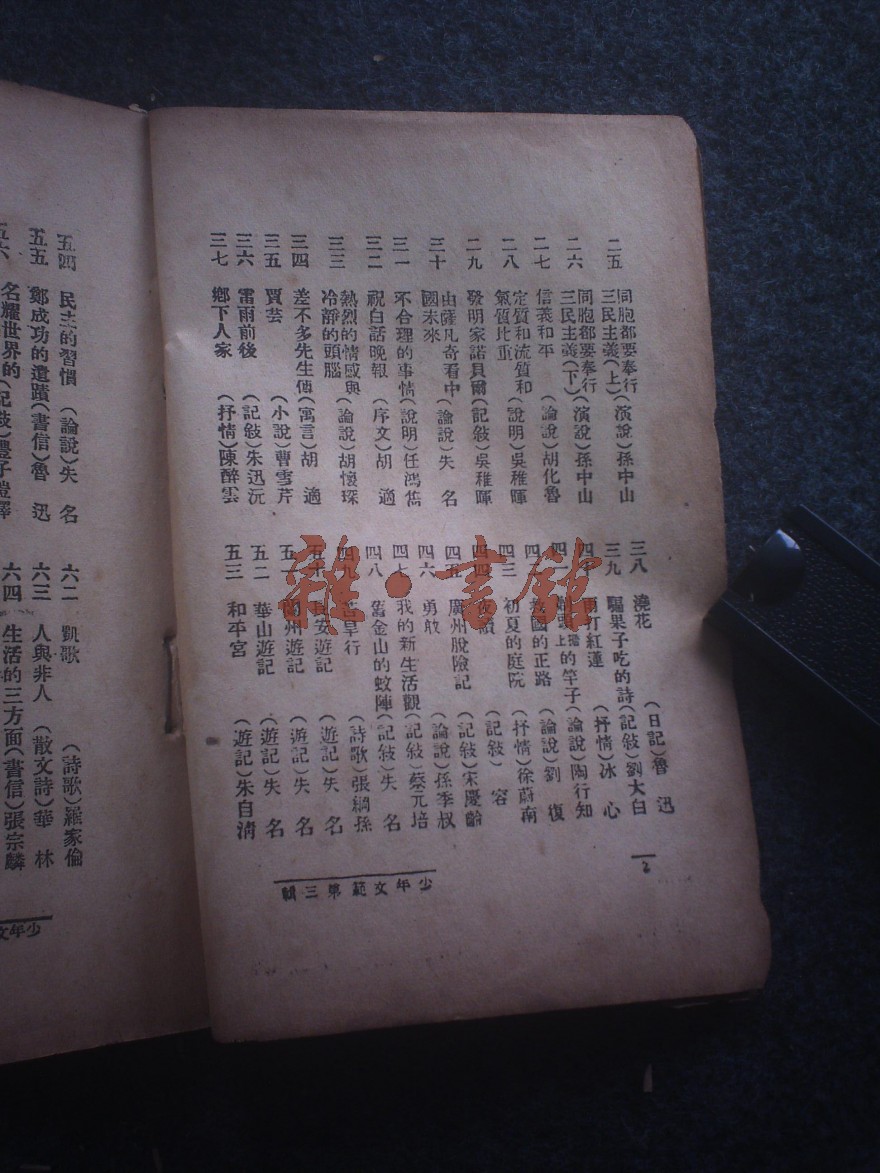 二五 同胞都要奉行三民主義(上)(演說)孫中山
二六 同胞都要奉行三民主義(下)(演說)孫中山
二七 信義和平 (論說)胡化魯
二八 定質和流質和氣質比重 (說明)吳稚暉
二九 發明家諾貝爾(記敍)吳稚暉
三十 由薩凡奇看中國未來 (論說)失 名
三一 不合理的事情(說明)任鴻雋
三二 祝白話晚報 (序文)胡 適
三三 熱烈的情感與冷靜的頭腦 (論說)胡懷琛
三四 差不多先生傳(寓言)胡 適
三五 賈芸 (小說)曹雪芹
三六 雷雨前後 (記敍)朱迅沅
三七 鄉下人家 (抒情)陳醉雲
三八 澆花 (日記)魯 迅
三九 騙果子吃的詩(記敍)劉大白
雨打紅蓮 (抒情)冰 心
上的竿子(論說)陶行知
救國的正路 (論說)劉 復
四三 初夏的庭院 (抒情)徐蔚南
四四 (記敍) 容
四五 廣州脫險記 (記敍)宋慶齡
四六 勇敢 (論說)孫季叔
四七 我的新生活觀(記敍)蔡元培
四八 舊金山的蚊陣(記敍)失 名
四九 苦旱行 (詩歌)張綱孫
五十 長安遊記 (遊記)失 名
五一 蘭州遊記 (遊記)失 名
五二 華山遊記 (遊記)失 名
五三 和平宮 (遊記)朱自清
少年文範第三輯
2
雜·書館
五四 民主的習慣 (論說)失 名
五五 鄭成功的遺蹟(書信)魯 迅
五六 名耀世界的(記敍)豐子愷譯
六二 凱歌 (詩歌)羅家倫
六三 人與非人 (散文詩)華 林
六四 生活的三方面(書信)張宗麟
少年文